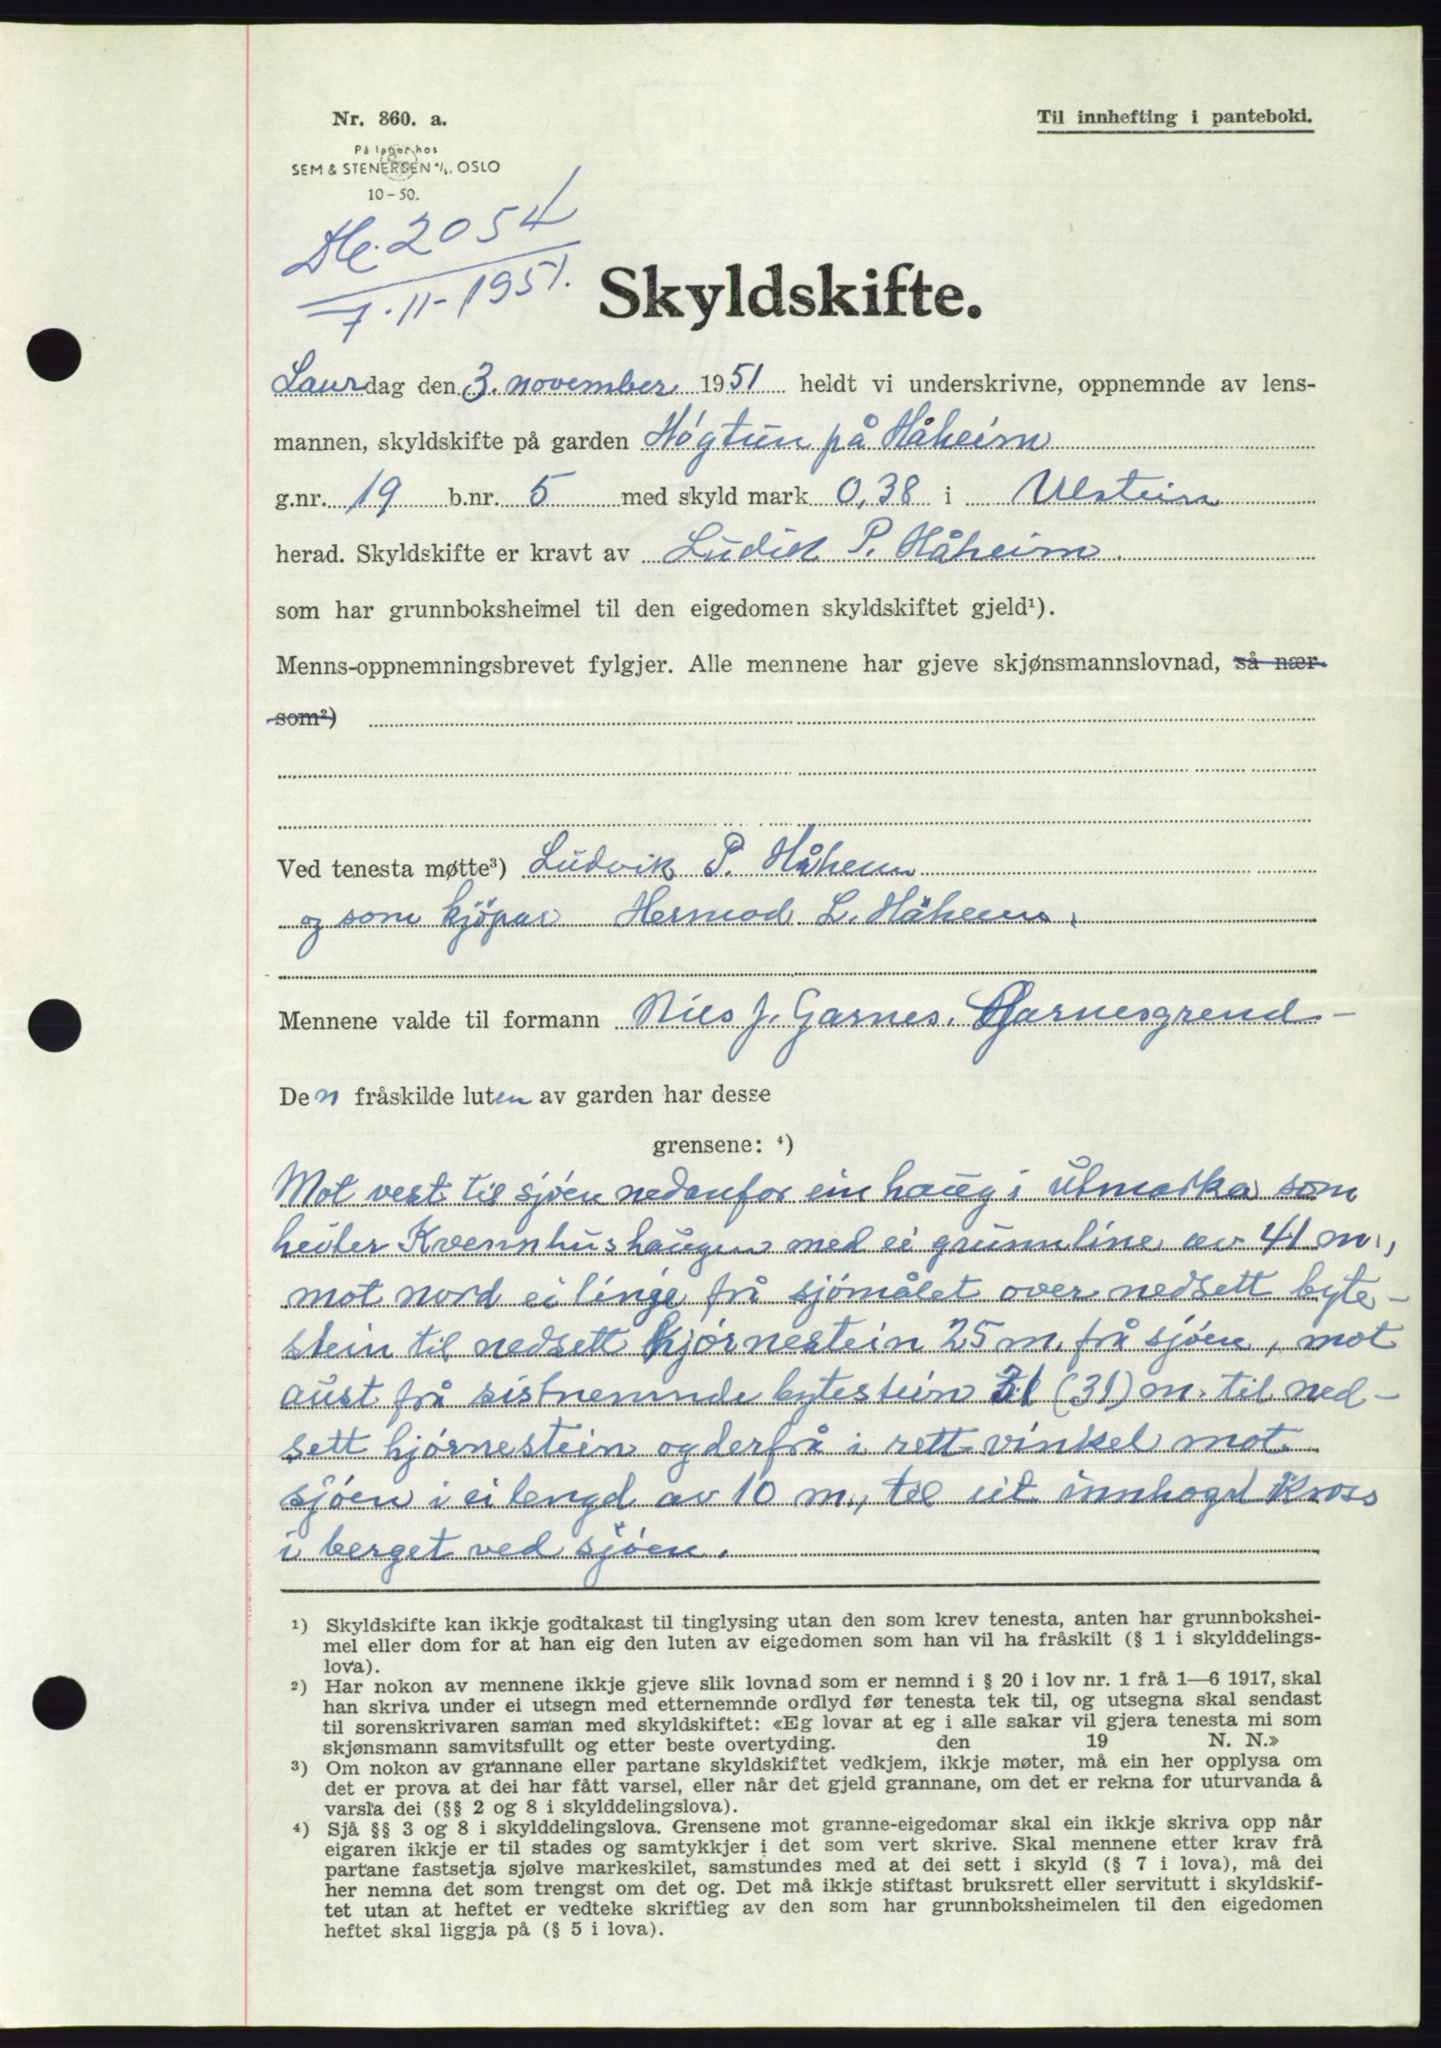 Nr. 860. a.
Til innhefting i panteboki.
På lager hos
SEM & STENERSEN A/S, OSLO
10-50.
2054
7.11-1951.
Skyldskifte.
Laurdag den 3. november 1951 heldt vi underskrivne, oppnemnde av lens-
mannen, skyldskifte på garden Høgtun på Håheim
g.nr. 19 b.nr. 5 med skyld mark 0,38 i Ulstein
herad. Skyldskifte er kravt av Ludvik P. Håheim.
som har grunnboksheimel til den eigedomen skyldskiftet gjeld¹).
Menns-oppnemningsbrevet fylgjer. Alle mennene har gjeve skjønsmannslovnad, så nær
som²)
Ved tenesta møtte³) Ludvik P. Håheim
og som kjöpar Hermod L. Håheim.
Mennene valde til formann Nils J. Garnes, Garnesgrend -
Den fråskilde luten av garden har desse
grensene: ⁴)
Mot vest til sjöen nedanfor ein haug i utmarka som
heiter Kvennhushaugen med ei grunnline av 41 m.,
mot nord ei linje frå sjömålet over nedsett byte-
stein til nedsett hjörnestein 25 m. frå sjöen, mot
aust frå sistnemnde bytestein 31 (31) m. til ned-
sett hjörnestein og derfrå i rett vinkel mot
sjöen i ei lengd av 10 m., til eit innhogd kross
i berget ved sjöen.
¹) Skyldskifte kan ikkje godtakast til tinglysing utan den som krev tenesta, anten har grunnbokshei-
mel eller dom for at han eig den luten av eigedomen som han vil ha fråskilt (§ 1 i skylddelings-
lova).
²) Har nokon av mennene ikkje gjeve slik lovnad som er nemnd i § 20 i lov nr. 1 frå 1—6 1917, skal
han skriva under ei utsegn med etternemnde ordlyd før tenesta tek til, og utsegna skal sendast
til sorenskrivaren saman med skyldskiftet: «Eg lovar at eg i alle sakar vil gjera tenesta mi som
skjønsmann samvitsfullt og etter beste overtyding. den 19 N. N.»
³) Om nokon av grannane eller partane skyldskiftet vedkjem, ikkje møter, må ein her opplysa om
det er prova at dei har fått varsel, eller når det gjeld grannane, om det er rekna for uturvanda å
varsla dei (§§ 2 og 8 i skylddelingslova).
⁴) Sjå §§ 3 og 8 i skylddelingslova. Grensene mot granne-eigedomar skal ein ikkje skriva opp når
eigaren ikkje er til stades og samtykkjer i det som vert skrive. Skal mennene etter krav frå
partane fastsetja sjølve markeskilet, samstundes med at dei sett i skyld (§ 7 i lova), må dei
her nemna det som trengst om det og. Det må ikkje stiftast bruksrett eller servitutt i skyldskif-
tet utan at heftet er vedteke skriftleg av den som har grunnboksheimelen til den eigedomen
heftet skal liggja på (§ 5 i lova).